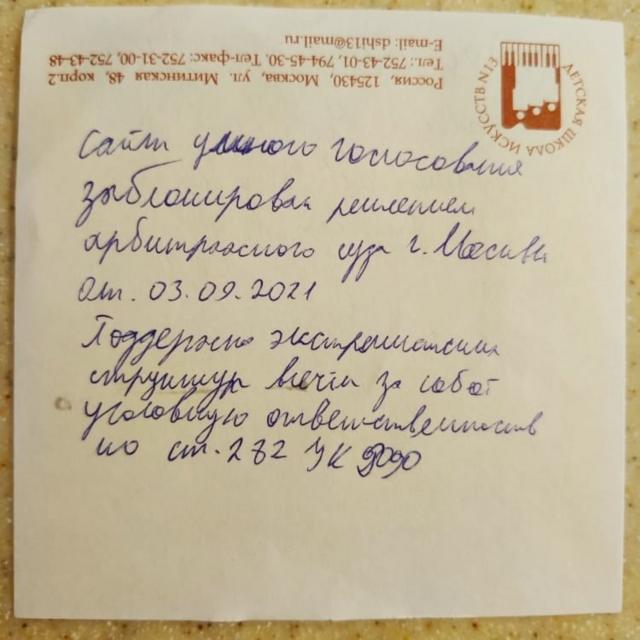 Россия, 125430, Москва, ул. Митинская 48, корп.2
Тел.: 752-43-01, 794-45-30. Тел-факс: 752-31-00, 752-43-48
E-mail: dshi13@mail.ru
ДЕТСКАЯ ШКОЛА ИСКУССТВ N13
Сайт умного голосования
заблокирован решением
арбитражного суда г. Москвы
от. 03.09.2021
Поддержка экстремистских
структур влечёт за собой
уголовную ответственность
по ст. 282 УК